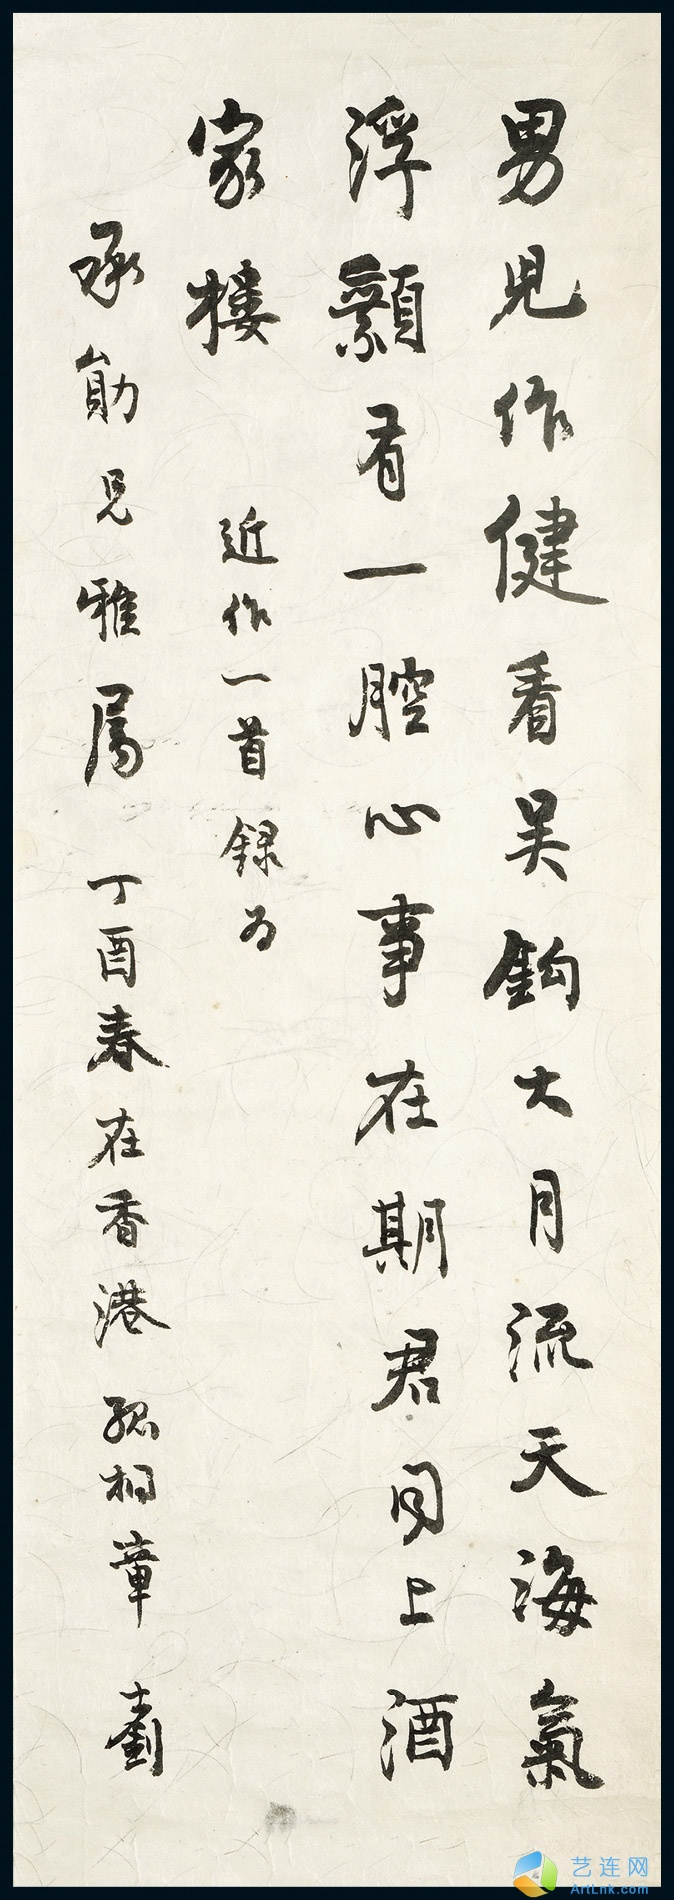 男兒作健看吴鈎大月流天海氣
浮有一腔心事在期君同上酒
家樓 近作一首録为
承勛兄雅属 丁酉春在香港 孤桐章士釗
艺连网
ArtLnk.com